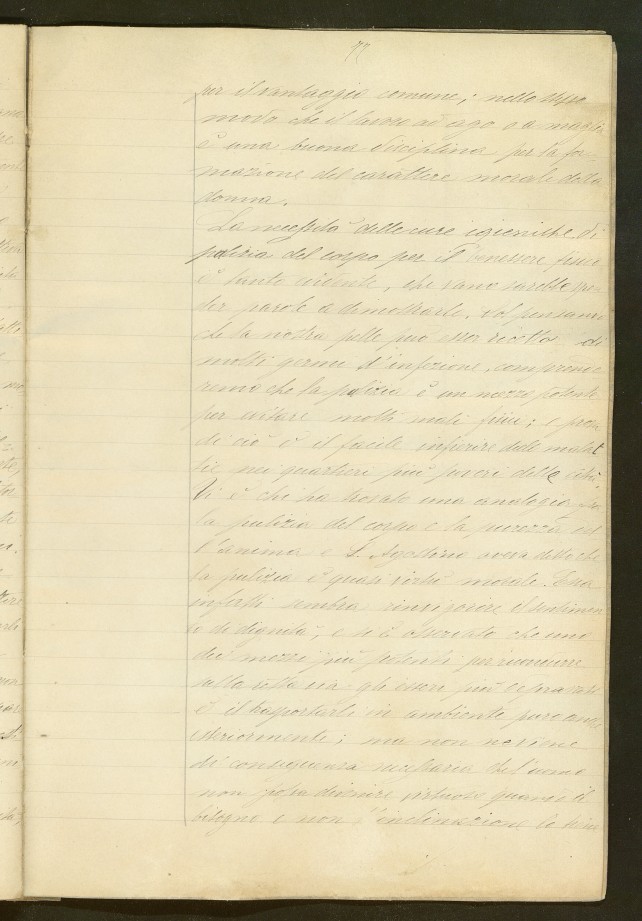 77
per il vantaggio comune; nello stesso
modo che il lavoro ad ago o a maglia
è una buona disciplina per la for-
mazione del carattere morale della
donna.
La necessità delle cure igieniche di
pulizia del corpo per il benessere fisico
è tanto evidente, che vano sarebbe spen
der parole a dimostrarlo. Sol pensando
che la nostra pelle può esser ricetto di
molti germi d'infezione, comprende
remo che la pulizia è un mezzo potente
per evitare molti mali fisici; e prova
di ciò è il facile infierire delle malat
tie nei quartieri più poveri delle città.
Vi è chi ha trovato una analogia fra
la pulizia del corpo e la purezza del
l'anima e S. Agostino aveva detto che
la pulizia è quasi virtù morale. Essa
infatti sembra rinvigorire il sentimen
to di dignità, e si è osservato che uno
dei mezzi più potenti per ricondurre
sulla retta via gli esseri più depravati
è il trasportarli in ambiente puro anche
esteriormente; ma non ne viene
di conseguenza necessaria che l'uomo
non possa divenire virtuoso quando il
bisogno e non l'inclinazione lo